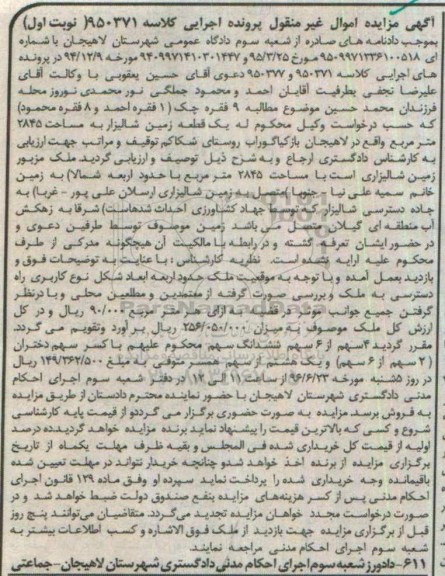 آگهی مزایده اموال غیر منقول پرونده اجرایی کلاسه ۹۵۰۳۷۱( نوبت اول)
بموجب دادنامه های صادره از شعبه سوم دادگاه عمومی شهرستان لاهیجان با شماره
ای ۹۵۰۹۹۷۱۳۳۶۱۰۰۵۱۸ مورخ ۹۵/۳/۲۵ و ۹۴۰۹۹۷۱۴۱۰۳۰۱۴۴۷ مورخه ۹۴/۱۲/۹ در پرونده
های اجرایی کلاسه ۹۵۰۳۷۱ و ۹۵۰۳۷۷ دعوی آقای حسین یعقوبی با وکالت آقای
علیرضا نجفی بطرفیت آقایان احمد و محمود جملگی نور محمدی نوروز محله
فرزندان محمد حسین موضوع مطالبه ۹ فقره چک (۱ فقره احمد و ۸ فقره محمود)
که حسب درخواست وکیل محکوم له یک قطعه زمین شالیزار به مساحت ۲۸۴۵
متر مربع واقع در لاهیجان بازکیاگوراب روستای شکاکم توقیف و مراتب جهت ارزیابی
به کارشناس دادگستری ارجاع و به شرح ذیل توصیف و ارزیابی گردید. ملک مزبور
زمین شالیزاری است با مساحت ۲۸۴۵ متر مربع با حدود اربعه شمالا) به زمین
خانم سمیه علی نیا – جنوبا) متصل به زمین شالیزاری ارسلان علی پور – غربا) به
جاده دسترسی شالیزار که توسط جهاد کشاورزی احداث شده است) شرقا به زهکش
آب منطقه ای گیلان متصل می باشد زمین موصوف توسط طرفین دعوی و
در حضور ایشان تعرفه گشته و در رابطه با مالکیت آن هیچگونه مدرکی از طرف
محکوم علیه ارایه نشده است. نظریه کارشناس : با عنایت به توضیحات فوق و
بازدید بعمل آمده و با توجه به موقعیت ملک حدود اربعه ابعاد شکل نوع کاربری راه
دسترسی به ملک و بررسی صورت گرفته از معتمدین و مطلعین محلی و با درنظر
گرفتن جمیع جوانب موثر در قضیه به ازای هر متر مربع ۹۰/۰۰۰ ریال و در کل
ارزش کل ملک موصوف به میزان ۲۵۶/۰۵۰/۰۰۰ ریال بر آورد وتقویم می گردد.
مقرر گردید ۴سهم از ۶ سهم ششدانگ سهم محکوم علیهم با کسر سهم دختران
( ۲ سهم از ۶ سهم) و یک هشتم از سهم همسر متوفی به مبلغ ۱۴۹/۳۶۲/۵۰۰ ریال
در روز ۵شنبه مورخه ۹۶/۶/۲۳ از ساعت ۱۱ الی ۱۲ در دفتر شعبه سوم اجرای احکام
مدنی دادگستری شهرستان لاهیجان با حضور نماینده محترم دادستان از طریق مزایده
به فروش برسد. مزایده به صورت حضوری برگزار می گردد و از قیمت پایه کارشناسی
شروع و کسی که بالاترین قیمت را پیشنهاد نماید برنده مزایده خواهد گردید. ده درصد
اولیه از قیمت کل خریداری شده فی المجلس و بقیه ظرف مهلت یکماه از تاریخ
برگزاری مزایده از برنده اخذ خواهد شد و چنانچه خریدار نتواند در مهلت تعیین شده
باقیمانده وجه خریداری شده را پرداخت نماید سپرده او وفق ماده ۱۲۹ قانون اجرای
احکام مدنی پس از کسر هزینه های مزایده بنفع صندوق دولت ضبط خواهد شد و در
صورت درخواست مجدد خواهان مزایده تجدید می گردد. متقاضیان می توانند پنج روز
قبل از برگزاری مزایده جهت بازدید از ملک فوق الاشاره و کسب اطلاعات بیشتر به
شعبه سوم اجرای احکام مدنی مراجعه نمایند.
۶۱۱- دادورز شعبه سوم اجرای احکام مدنی دادگستری شهرستان لاهیجان- جماعتی